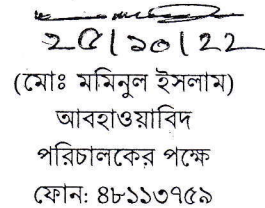 ২৫/১০/২২
(মোঃ মমিনুল ইসলাম)
আবহাওয়াবিদ
পরিচালকের পক্ষে
ফোন: ৪৮১১৩৭৫৯